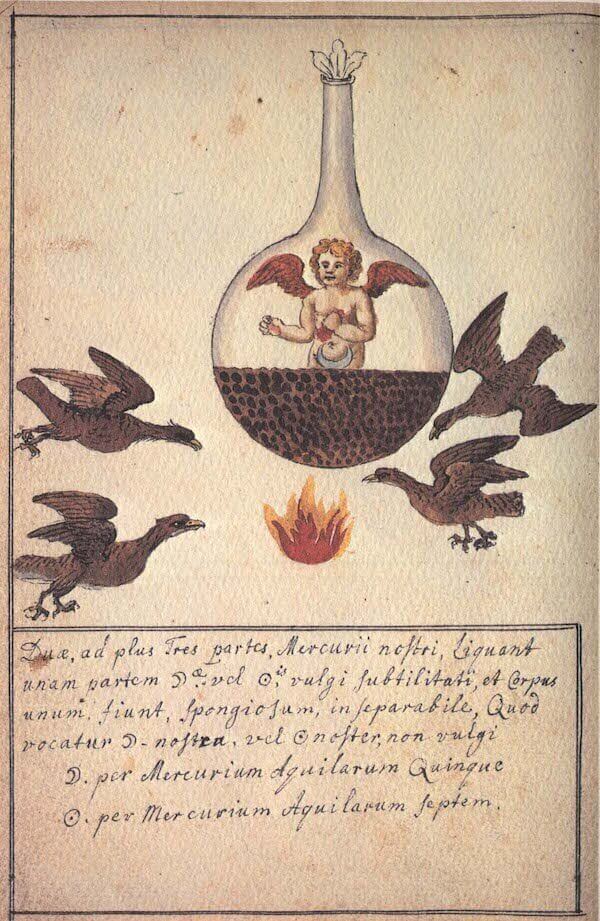 Duæ, ad plus Tres partes, Mercurii nostri, liquant
unam partem ☽æ. vel ☉is vulgi subtilitati, et Corpus
unum, fiunt, spongiosum, inseparabile, Quod
vocatur ☽- nostra, vel ☉ noster, non vulgi
☽. per Mercurium Aquilarum Quinque
☉. per Mercurium Aquilarum septem.